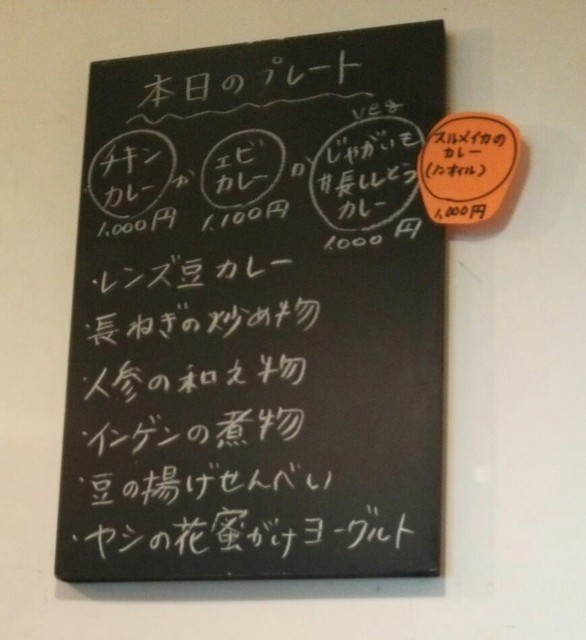 本日のプレート
veg
チキン
カレー
か
1,000円
エビ
カレー
か
1,100円
じゃがいも
甘長ししとう
カレー
1,000円
スルメイカの
カレー
(ノンオイル)
1,000円
・レンズ豆カレー
・長ねぎの炒め物
・人参の和え物
・インゲンの煮物
・豆の揚げせんべい
・ヤシの花蜜がけヨーグルト